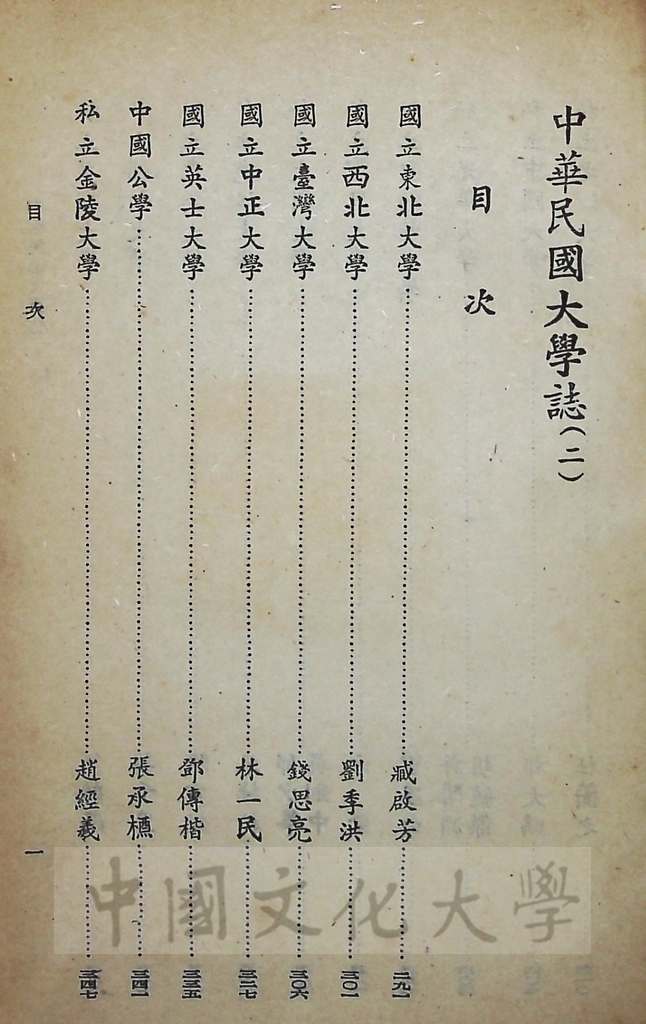 中華民國大學誌(二)
目次
國立東北大學……臧啟芳……二九一
國立西北大學……劉季洪……三〇一
國立臺灣大學……錢思亮……三〇六
國立中正大學……林一民……三二七
國立英士大學……鄧傳楷……三三五
中國公學……張承櫄……三四一
私立金陵大學……趙經義……三四七
目次 一
中國文化大學